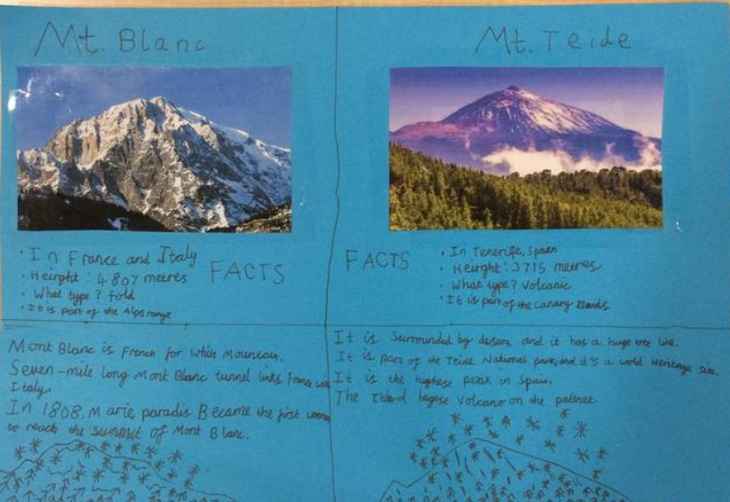 Mt. Blanc
· In France and Italy
· Heirght : 4 807 metres
· What type ? fold
· It is part of the Alps range
FACTS
Mont Blanc is French for White Mountain.
Seven-mile long Mont Blanc tunnel links France with
Italy.
In 1808. Marie paradis Became the first woman
to reach the summet of Mont Blanc.
Mt. Teide
FACTS
· In Tenerife, Spain
· Heirght : 3715 metres
· What type ? Volcanic
· It is part of the Canary Islands
It is Surrounded by desert and it has a huge tree line.
It is part of the Teide National park, and it's a world Heritage site.
It is the highest peak in Spain.
The third largest Volcano on the